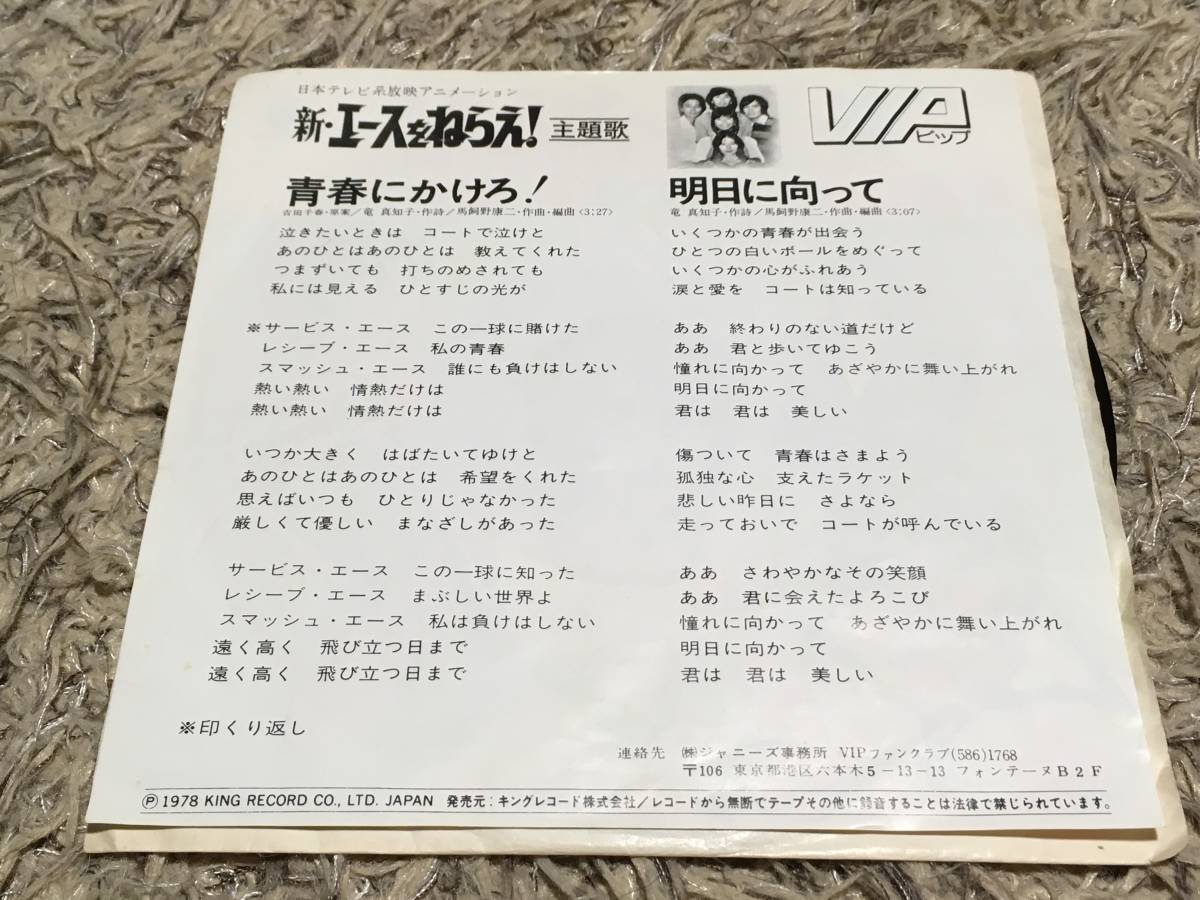 日本テレビ系放映アニメーション
新・エースをねらえ! 主題歌
VIP
ビップ
青春にかけろ!
吉田千春・原案/竜 真知子・作詩/馬飼野康二・作曲・編曲〈3:27〉
泣きたいときは コートで泣けと
あのひとはあのひとは 教えてくれた
つまずいても 打ちのめされても
私には見える ひとすじの光が
※サービス・エース この一球に賭けた
レシーブ・エース 私の青春
スマッシュ・エース 誰にも負けはしない
熱い熱い 情熱だけは
熱い熱い 情熱だけは
いつか大きく はばたいてゆけと
あのひとはあのひとは 希望をくれた
思えばいつも ひとりじゃなかった
厳しくて優しい まなざしがあった
サービス・エース この一球に知った
レシーブ・エース まぶしい世界よ
スマッシュ・エース 私は負けはしない
遠く高く 飛び立つ日まで
遠く高く 飛び立つ日まで
※印くり返し
明日に向って
竜 真知子・作詩/馬飼野康二・作曲・編曲〈3:07〉
いくつかの青春が出会う
ひとつの白いボールをめぐって
いくつかの心がふれあう
涙と愛を コートは知っている
ああ 終わりのない道だけど
ああ 君と歩いてゆこう
憧れに向かって あざやかに舞い上がれ
明日に向かって
君は 君は 美しい
傷ついて 青春はさまよう
孤独な心 支えたラケット
悲しい昨日に さよなら
走っておいで コートが呼んでいる
ああ さわやかなその笑顔
ああ 君に会えたよろこび
憧れに向かって あざやかに舞い上がれ
明日に向かって
君は 君は 美しい
連絡先 ㈱ジャニーズ事務所 VIPファンクラブ(586)1768
〒106 東京都港区六本木5-13-13 フォンテーヌB2F
Ⓟ1978 KING RECORD CO., LTD. JAPAN 発売元:キングレコード株式会社/レコードから無断でテープその他に録音することは法律で禁じられています。